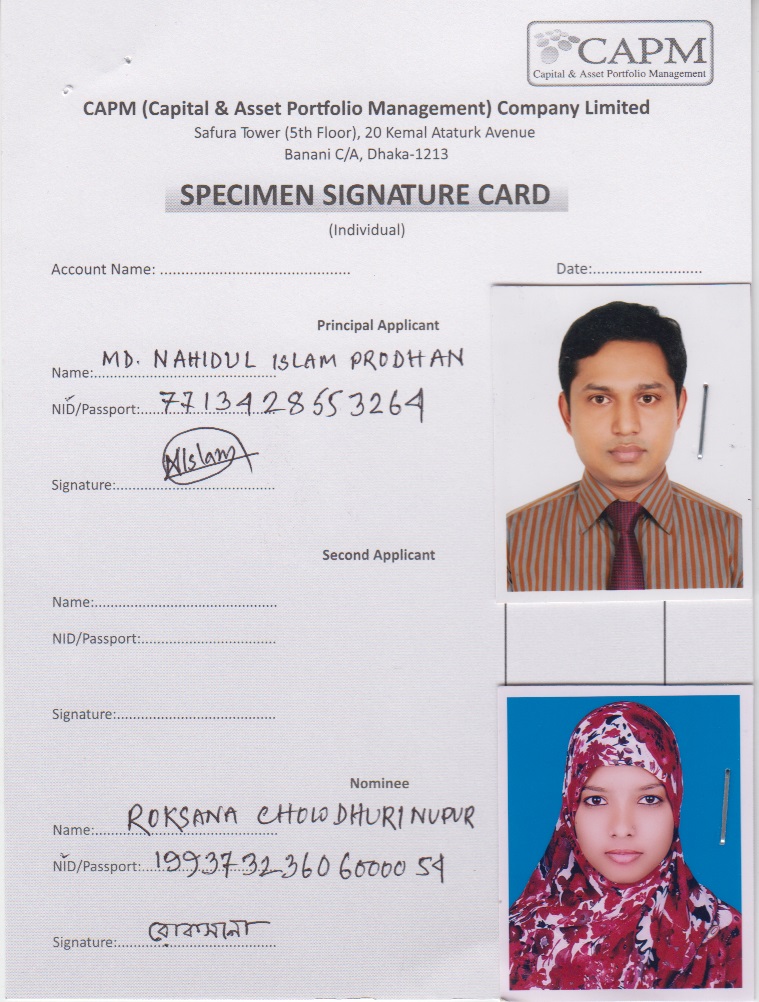 CAPM
Capital & Asset Portfolio Management
CAPM (Capital & Asset Portfolio Management) Company Limited
Safura Tower (5th Floor), 20 Kemal Ataturk Avenue
Banani C/A, Dhaka-1213
SPECIMEN SIGNATURE CARD
(Individual)
Account Name: ............................................ Date:..........................
Principal Applicant
Name: MD. NAHIDUL ISLAM PRODHAN
NID/Passport: 7713428553264
Signature: NIslam
Second Applicant
Name:............................................
NID/Passport:................................
Signature:......................................
Nominee
Name: ROKSANA CHOWDHURI NUPUR
NID/Passport: 19937323606000054
Signature: রোকসানা